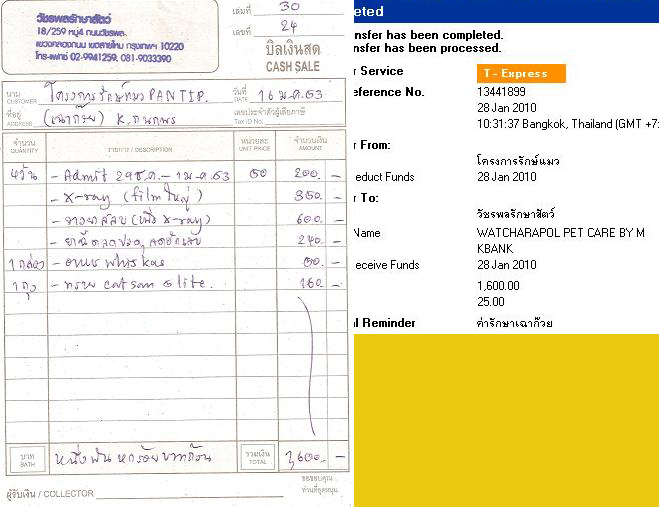 วัชรพลรักษาสัตว์
18/259 หมู่4 ถนนวัชรพล
แขวงคลองถนน เขตสายไหม กรุงเทพฯ 10220
โทร-แฟกซ์ 02-9941259, 081-9033390
เล่มที่ 30
เลขที่ 24
บิลเงินสด
CASH SALE
นาม CUSTOMER โครงการรักษ์แมว PANTIP.
วันที่ DATE 16 ม.ค.53
ที่อยู่ ADDRESS (เฉาก๊วย) K.
เลขประจำตัวผู้เสียภาษี
Tax ID No.
จำนวน QUANTITY รายการ / DESCRIPTION หน่วยละ UNIT PRICE จำนวนเงิน AMOUNT
4วัน - Admit 29 ธ.ค. - 1 ม.ค. 53 50 200. -
- X-ray (film ใหญ่) 350. -
- ยาสลบ (เพื่อ x-ray) 600. -
240. -
1 กล่อง - อาหาร whiskas 50. -
1 ถุง - ทราย catsan 5 lite. 160. -
บาท BATH หนึ่งพันหกร้อยบาทถ้วน รวมเงิน TOTAL 1,600. -
ผู้รับเงิน / COLLECTOR
ขอขอบคุณ
ท่านที่อุดหนุน
eted
nsfer has been completed.
nsfer has been processed.
r Service T - Express
eference No. 13441899
28 Jan 2010
10:31:37 Bangkok, Thailand (GMT +7:
r From:
โครงการรักษ์แมว
educt Funds 28 Jan 2010
r To:
วัชรพลรักษาสัตว์
Name WATCHARAPOL PET CARE BY M
KBANK
eceive Funds 28 Jan 2010
1,600.00
25.00
al Reminder ค่ารักษาเฉาก๊วย